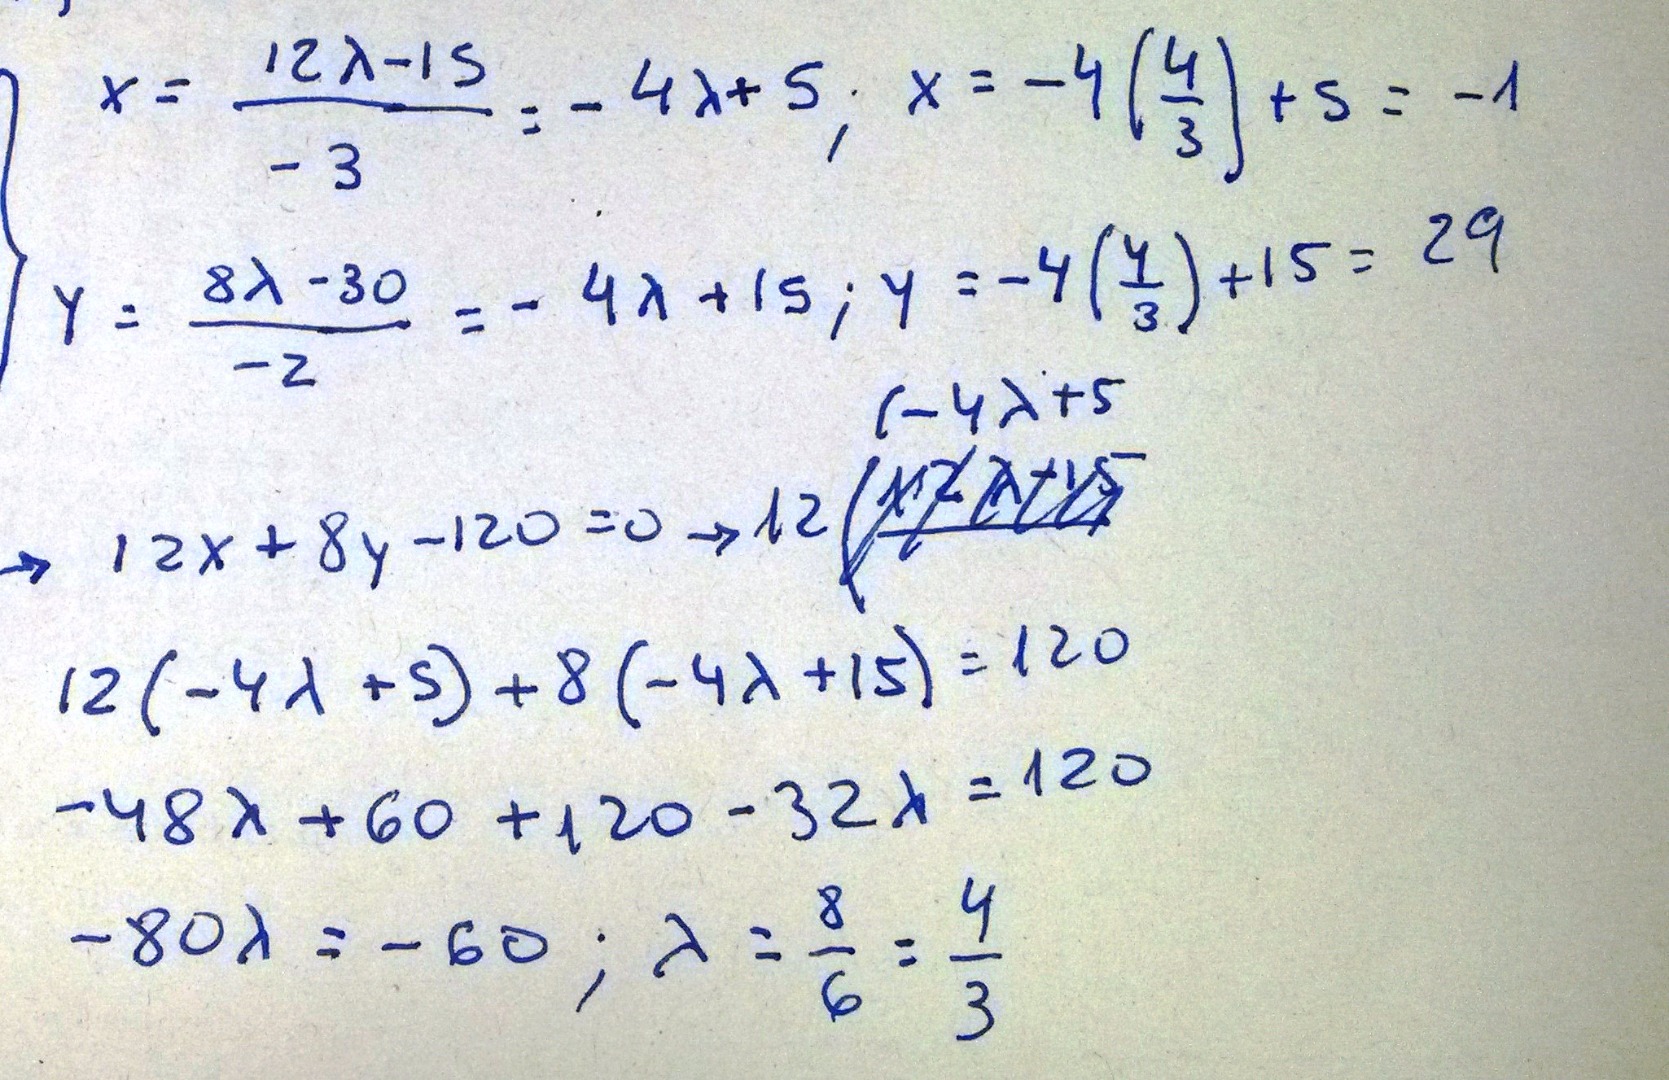 x = (12λ-15)/(-3) = -4λ+5; x = -4(4/3)+5 = -1
y = (8λ-30)/(-2) = -4λ+15; y = -4(4/3)+15 = 29
(-4λ+5
→ 12x+8y-120=0 → 12(
12(-4λ+5)+8(-4λ+15)=120
-48λ+60+120-32λ=120
-80λ=-60; λ=8/6=4/3